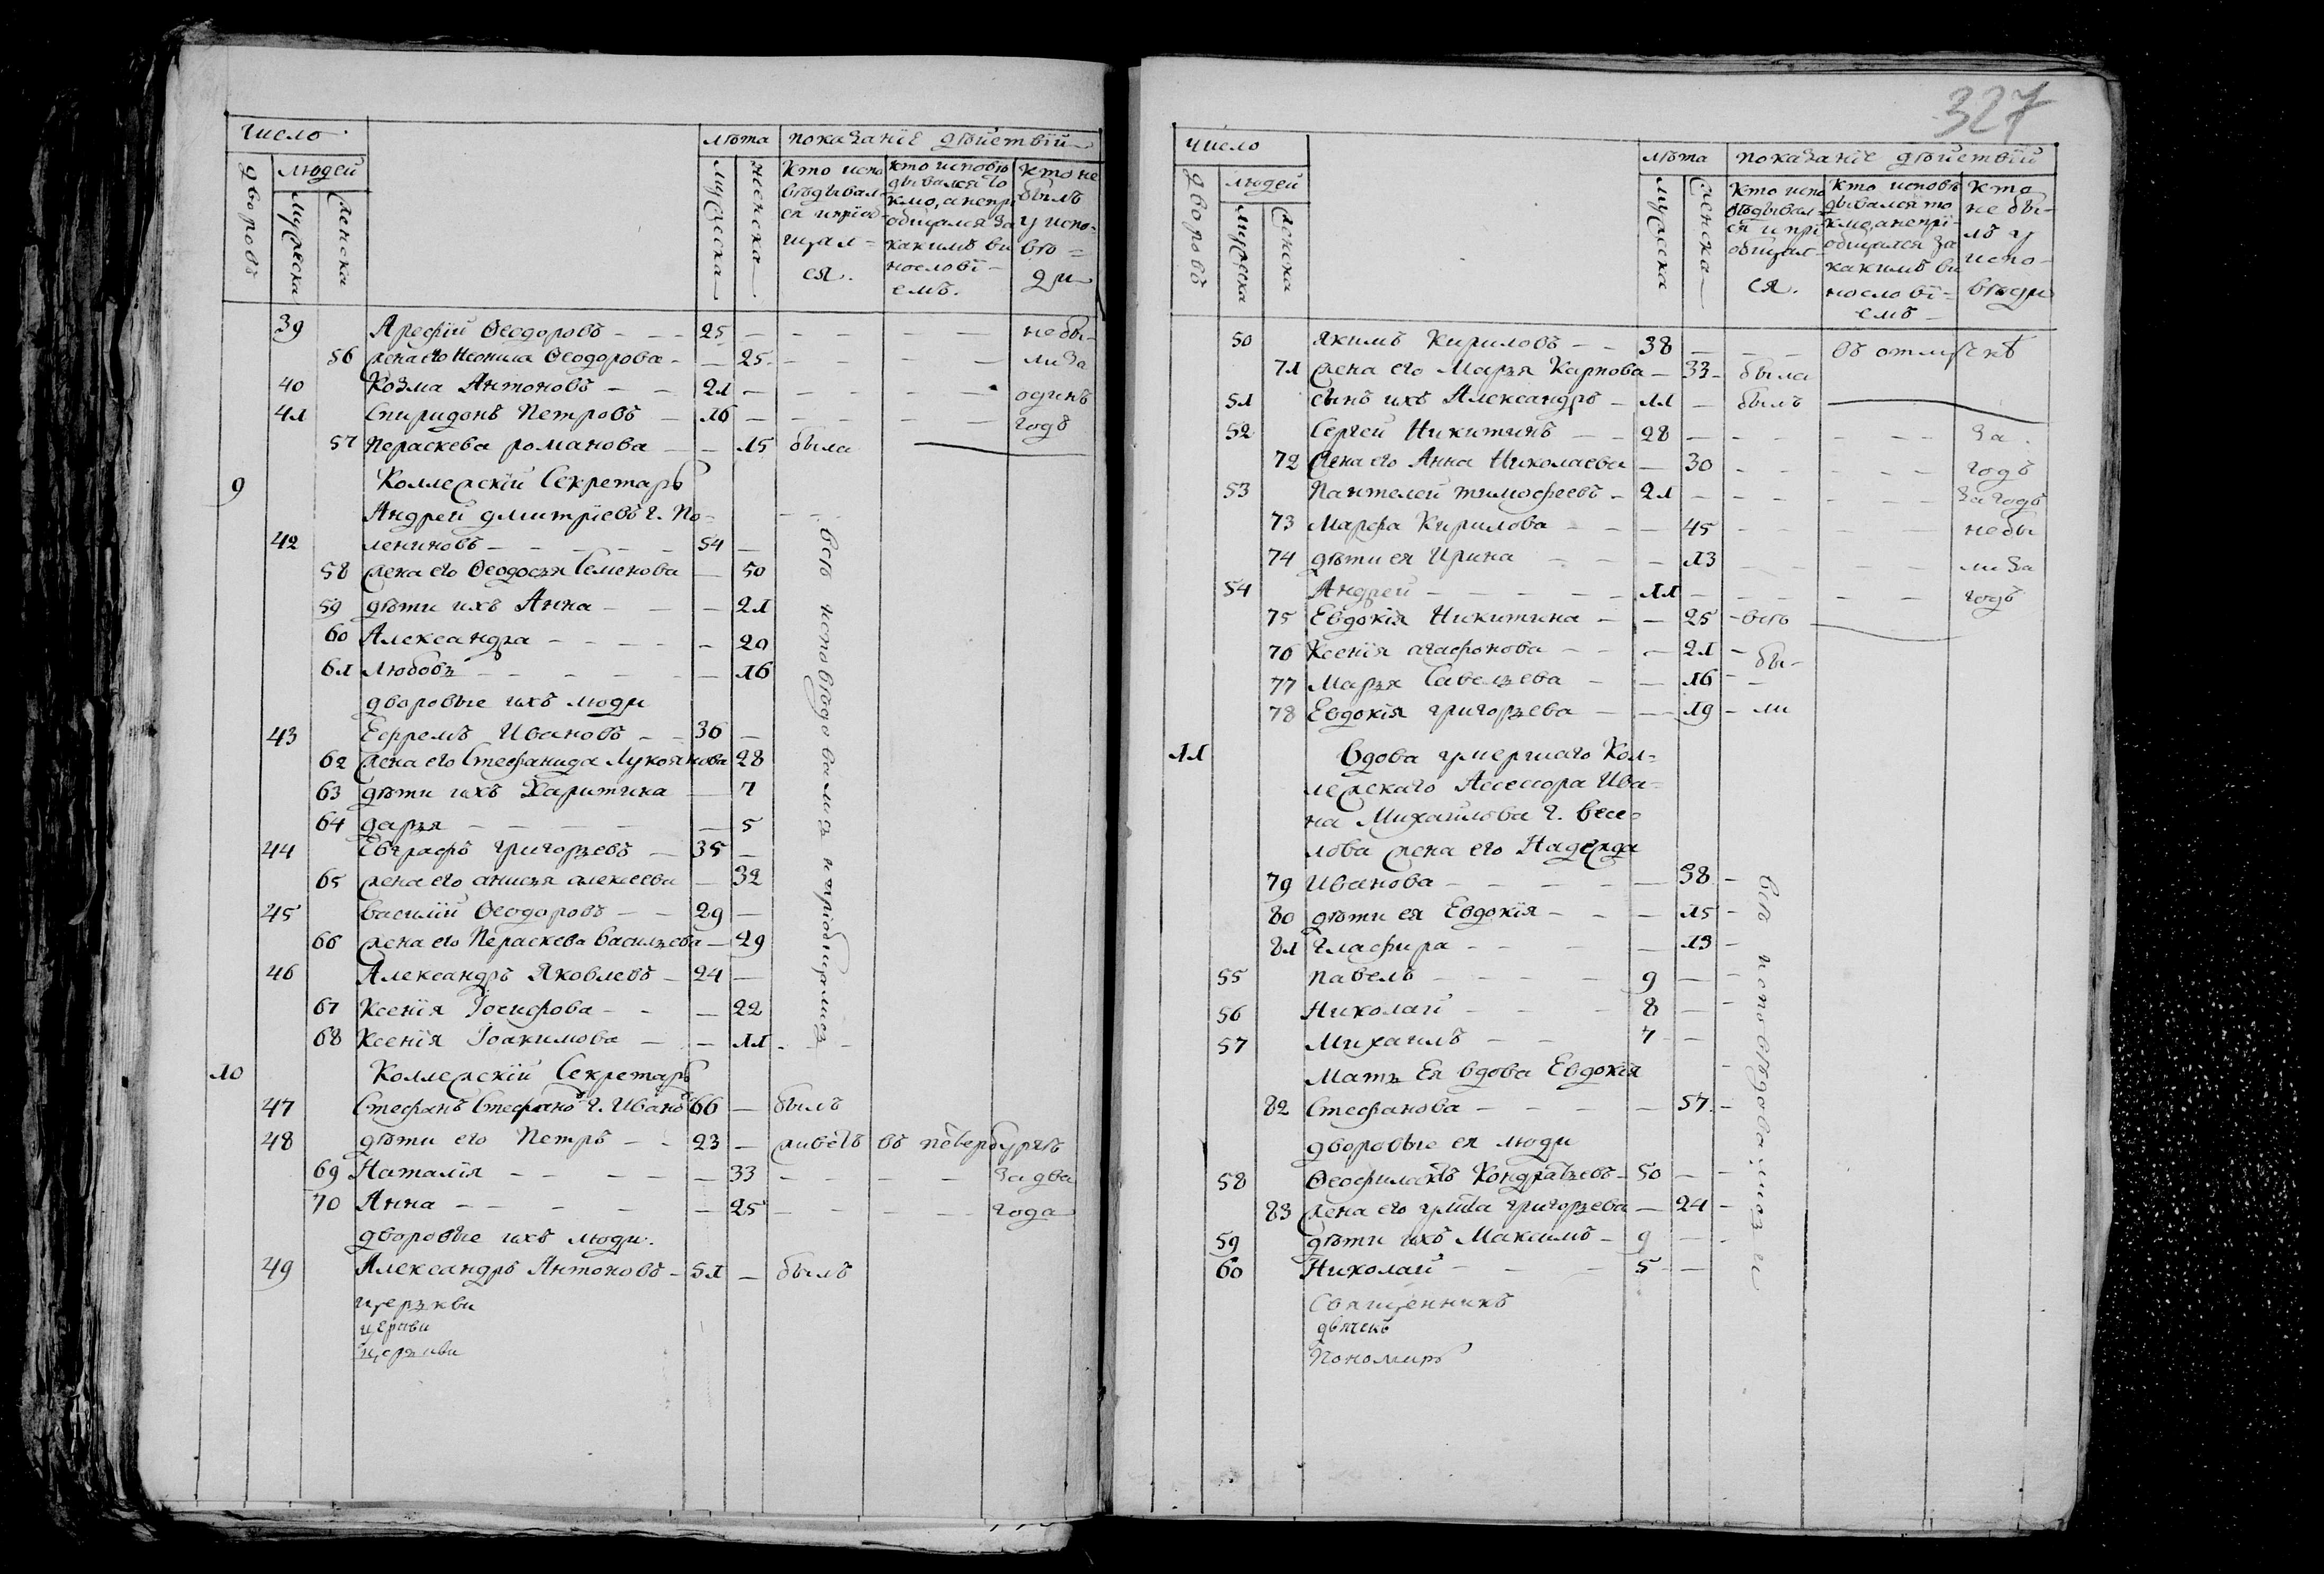 число
дворовъ
людей
мужеска
женска
лѣта
мужеска
женска
показанїе дѣйствїй
кто испо
вѣдывал-
ся и прїоб-
щал=
ся.
кто исповѣ
дывался то
кмо, а непрї
общался за
какимъ ви
нословї-
емъ.
кто не
былъ
у испо-
вѣ=
ди
39 Арефїй Ѳеодоровъ — 25 — не бы-
56 жена его Неонила Ѳеодорова — 25 — ли за
40 Козма Антоновъ — 21 — одинъ
41 Спиридонъ Петровъ — 16 — годъ
57 Пераскева романова — 15 была
9 Коллежскїй Секретарь
Андрей дмитрїевъ г. По-
42 лениновъ — 54 —
58 жена его Ѳеодосья Семенова — 50
59 дѣти ихъ Анна — 21
60 Александра — 20
61 Любовь — 16
дворовые ихъ люди
43 Ефремъ Ивановъ — 36 —
62 жена его Стефанида Лукоянова 28
63 дѣти ихъ Харитина — 7
64 дарья — 5
44 Евграфъ григорьевъ — 35 —
65 жена его анисья алексеева — 32
45 василїй Ѳеодоровъ — 29 —
66 жена его Пераскева васильева — 29
46 Александръ Яковлевъ — 24 —
67 Ксенїя Їосифова — 22
68 Ксенїя Їоакимова — 11
всѣ исповѣдовались и прїобщались
10 Коллежскїй Секретарь
47 Стефанъ Стефановъ г. Ивановъ 66 — былъ
48 дѣти его Петръ — 23 — живетъ въ петербургѣ
69 Наталїя — 33 — за два
70 Анна — 25 — года
дворовые ихъ люди.
49 Александръ Антоновъ — 51 — былъ
церькви
церкви
церькви
327
число
дворовъ
людей
мужеска
женска
лѣта
мужеска
женска
показанїе дѣйствїй
кто испо
вѣдывал=
ся и прї
общал=
ся.
кто исповѣ
дывался то
кмо, а непрї-
общался за
какимъ ви
нословї=
емъ
кто
не бы-
лъ у
испо-
вѣди
50 якимъ Кириловъ — 38 — въ отлучкѣ
71 жена его Марья Карпова — 33 — была
51 сынъ ихъ Александръ — 11 — былъ
52 Сергей Никитинъ — 28 — за
72 жена его Анна Николаева — 30 — годъ
53 Пантелей тимофеевъ — 21 — за годъ
73 Марфа Кирилова — 45 — не бы
74 дѣти ея Ирина — 13 — ли за
54 Андрей — 11 — годъ
75 Евдокїя Никитина — 25 — всѣ
76 Ксенїя агафонова — 21 — бы-
77 Марья Савельева — 16 —
78 Евдокїя григорьева — 19 — ли
11 вдова умершаго Кол-
лежскаго Ассессора Ива-
на Михаилова г. весе-
лова жена его Надежда
79 Иванова — 38 —
80 дѣти ея Евдокїя — 15 —
81 Глафира — 13 —
55 павелъ — 9 —
56 Николай — 8 —
57 Михаилъ — 7 —
Мать Ея вдова Евдокїя
82 Стефанова — 57 —
дворовые ея люди
58 Ѳеофилактъ Кондратьевъ — 50 —
83 жена его улита григорьева — 24 —
59 дѣти ихъ Максимъ — 9 —
60 Николай — 5 —
всѣ исповѣдовались и
Священникъ
дьячекъ
Пономарь